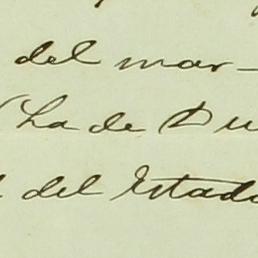 del mar-
(La de Du
del Estado